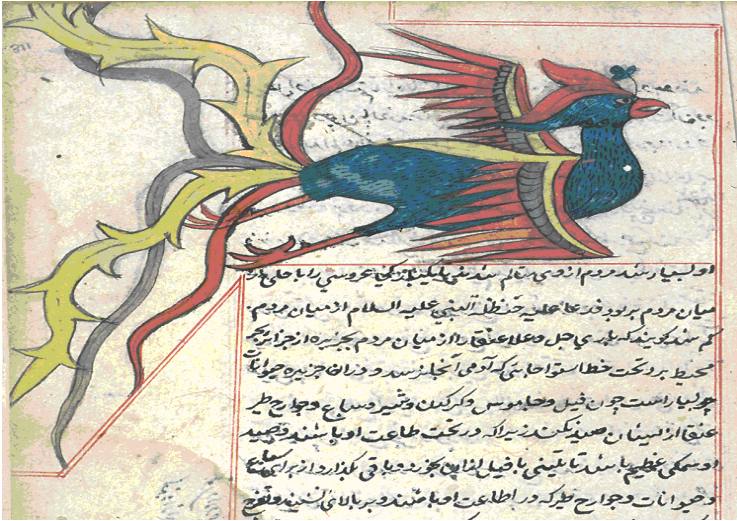 او بسیار شد مردم از وی
میان مردم بربود فدعا علیه حنظلة النبی علیه السلام از میان مردم
کم شد گویند که باری جل و علا عنقا را از میان مردم بجزیره از جزایر بحر
محیط برد تحت خط استوا جایی که آدمی آنجا نرسد و دران جزیره حیوانات
بسیار است چون فیل و جاموس و کرکدن و شیر و سباع و جوارح طیر
عنقا از ایشان صید نکند زیرا که در تحت طاعت او باشند و صید
او سمکی عظیم باشد یا تنینی یا فیل از آن بخورد و باقی بگذارد از برای سباع
و حیوانات و جوارح طیر که در اطاعت او باشند و بر بالای